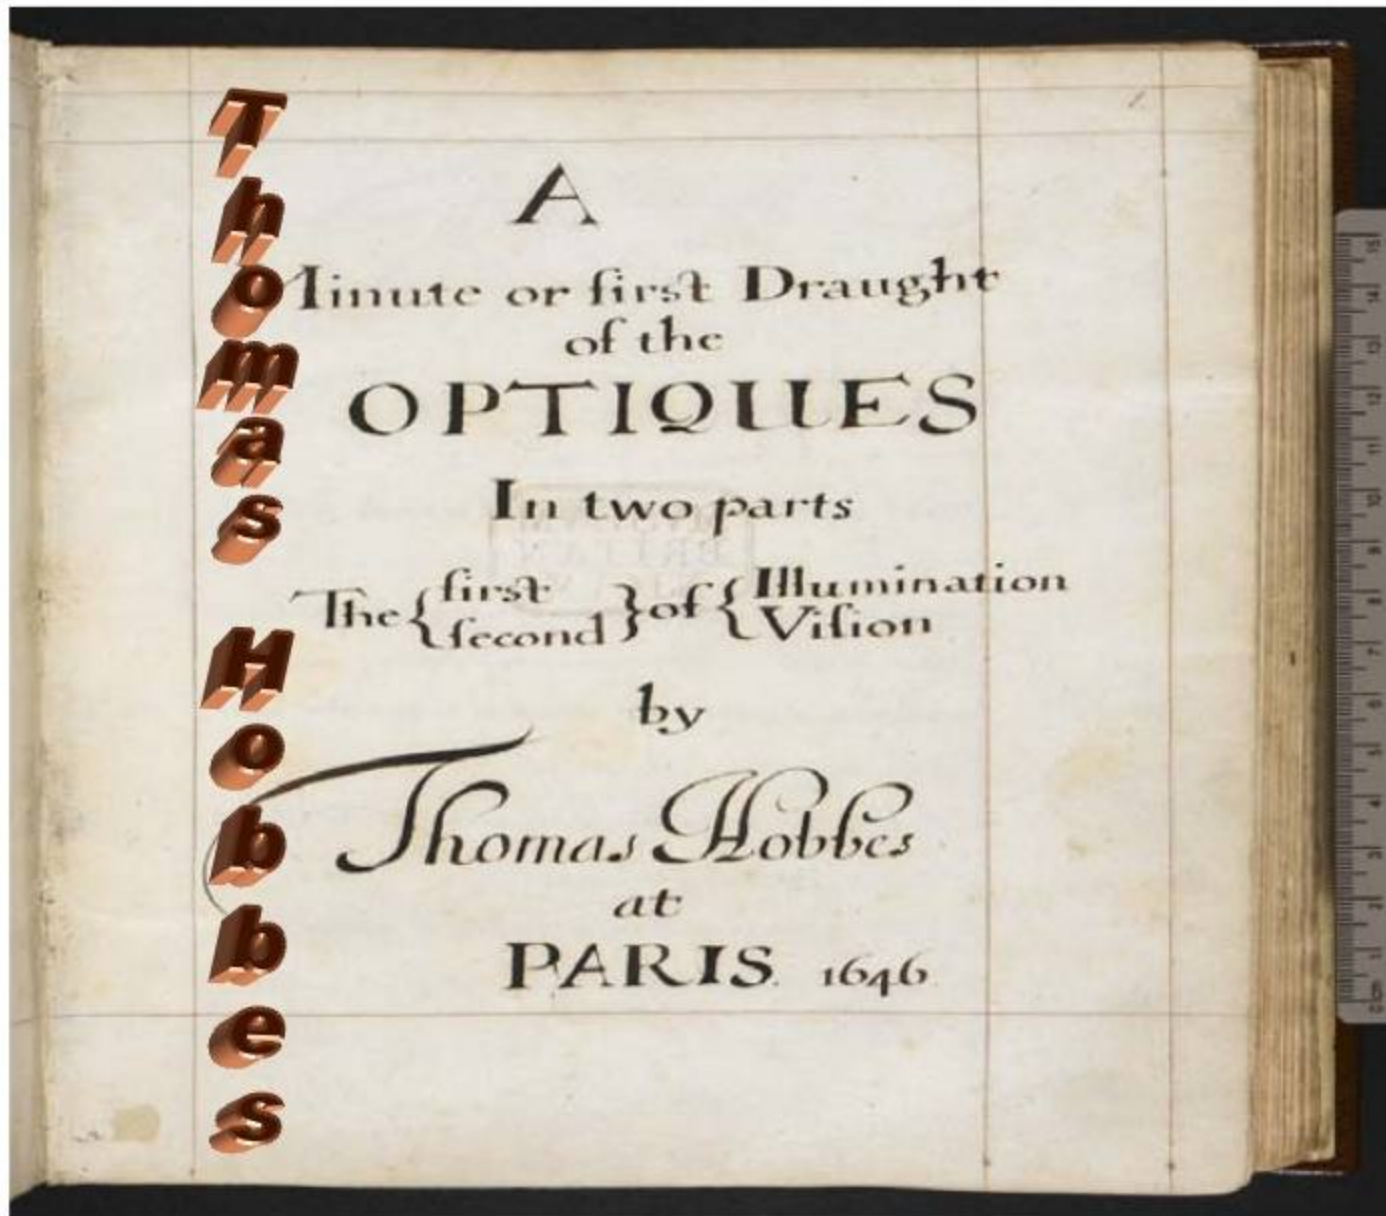 Thomas Hobbes
A
Minute or first Draught
of the
OPTIQUES
In two parts
The { first } of { Illumination
second Vision
by
Thomas Hobbes
at
PARIS. 1646.